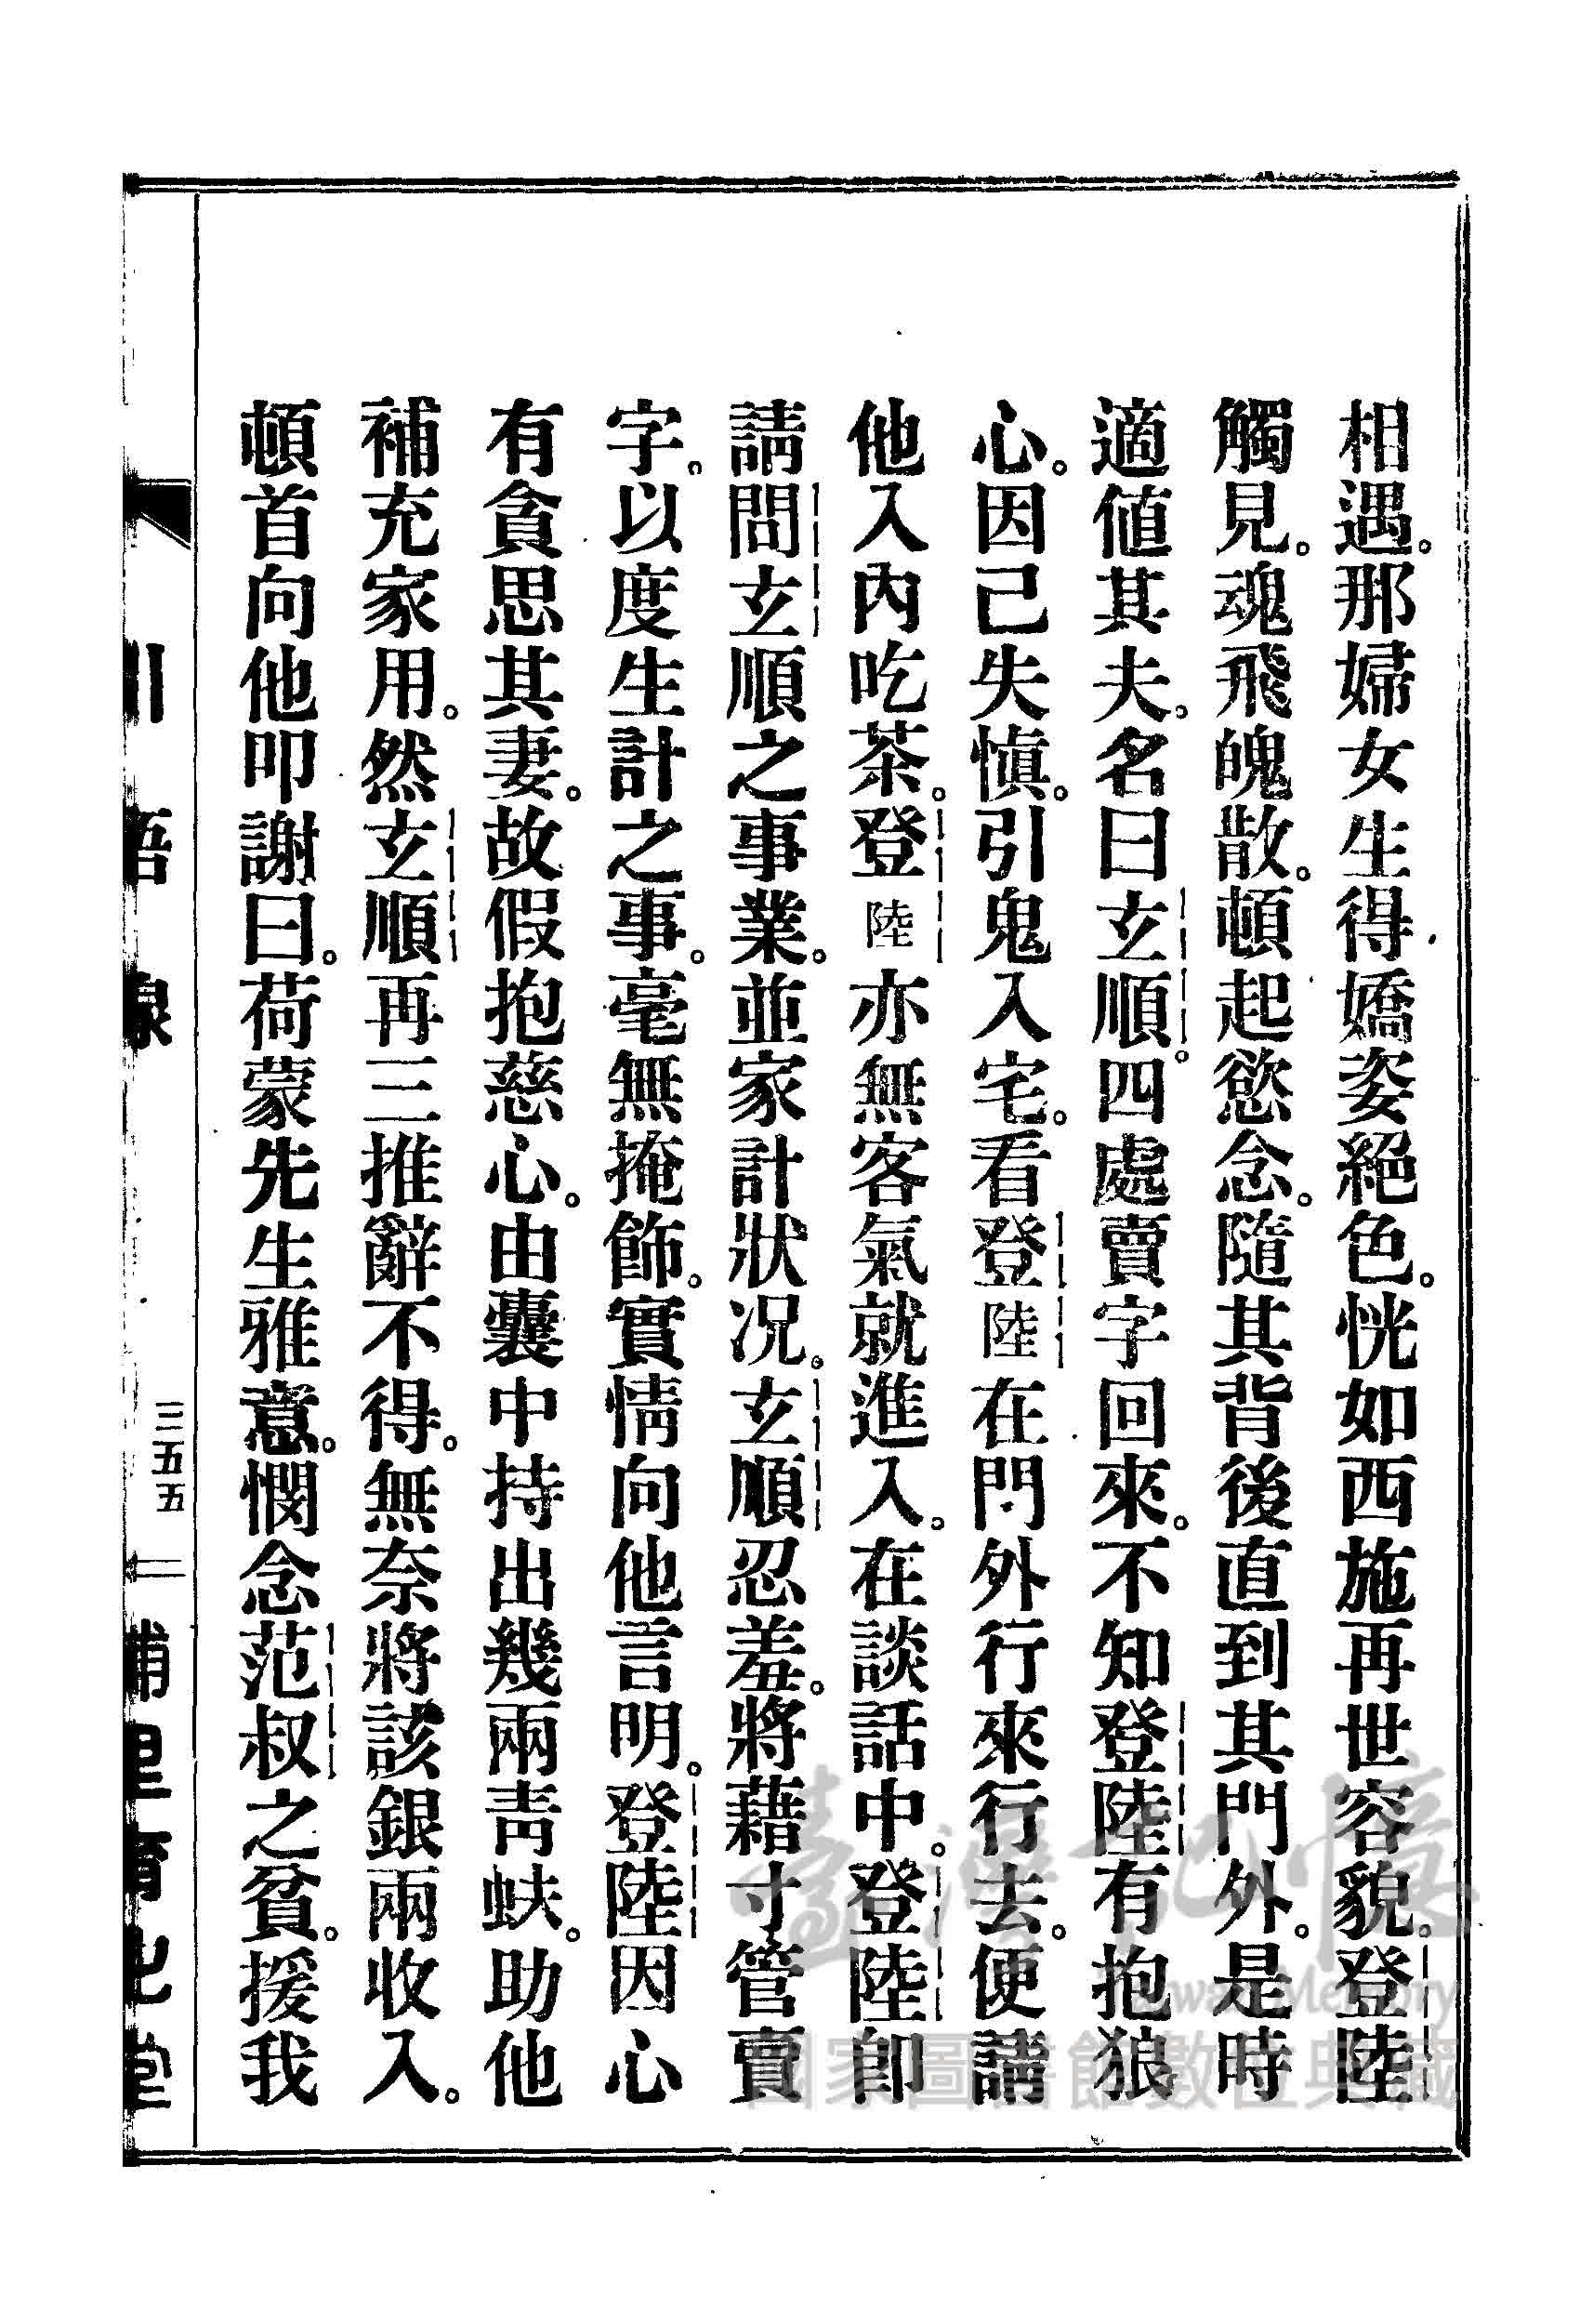 相遇。那婦女生得嬌姿絕色。恍如西施再世容貌。登陸
觸見。魂飛魄散。頓起慾念。隨其背後直到其門外。是時
適値其夫。名曰玄順。四處賣字回來。不知登陸有抱狼
心。因己失愼。引鬼入宅。看登陸在門外行來行去。便請
他入內吃茶。登陸亦無客氣就進入。在談話中。登陸卽
請問玄順之事業。並家計狀況。玄順忍羞。將藉寸管賣
字。以度生計之事。毫無掩飾。實情向他言明。登陸因心
有貪思其妻。故假抱慈心。由囊中持出幾兩靑蚨。助他
補充家用。然玄順再三推辭不得。無奈將該銀兩收入。
頓首向他叩謝曰。荷蒙先生雅意。憫念范叔之貧。援我
三五五
育化堂
臺灣記憶
Taiwan Memory
國家圖書館數位典藏